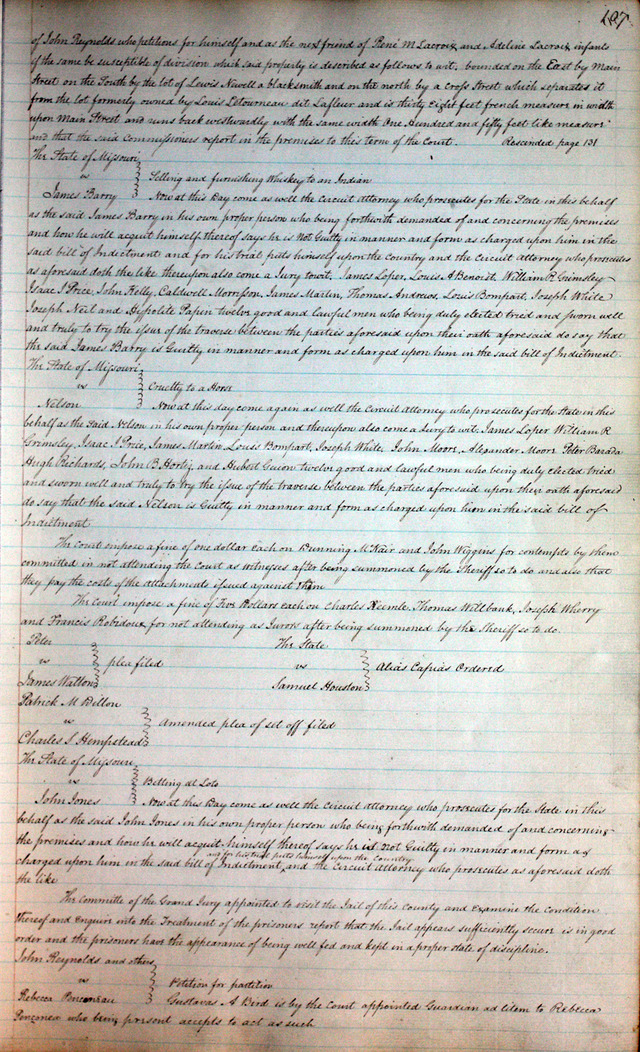 107
of John Reynolds who petitions for himself and as the next friend of René M Lacroix and Adeline Lacroix infants
if the same be susceptible of division which said property is described as follows to wit, bounded on the East by Main
Street on the South by the lot of Lewis Newell a blacksmith and on the north by a cross Street which separates it
from the lot formerly owned by Louis Letourneau dit Lafleur and is thirty Eight feet french measure in width
upon Main Street and runs back westwardly with the same width One Hundred and fifty feet like measure
and that the said Commissioners report in the premises to this term of the Court. Rescended page 131
The State of Missouri
vs Selling and furnishing Whiskey to an Indian
James Barry Now at this Day come as well the Circuit Attorney who prosecutes for the State in this behalf
as the said James Barry in his own proper person who being forthwith demanded of and concerning the premises
and how he will acquit himself thereof Says he is Not Guilty in manner and form as charged upon him in the
said bill of Indictment and for his trial puts himself upon the Country and the Circuit Attorney who prosecutes
as aforesaid doth the like thereupon also come a Jury towit, James Loper, Louis A Benoist, William R Grimsley
Isaac J Price, John Kelly, Caldwell Morrisson, James Martin, Thomas Andrews, Louis Bompart, Joseph White
Joseph Neil and Hypolite Papin twelve good and lawful men who being duly elected tried and sworn well
and truly to try the issue of the traverse between the parties aforesaid upon their oath aforesaid do say that
the said James Barry is Guilty in manner and form as charged upon him in the said bill of Indictment.
The State of Missouri
vs Cruelty to a Horse
Nelson Now at this day come again as well the Circuit Attorney who prosecutes for the State in this
behalf as the said Nelson in his own proper person and thereupon also come a Jury to wit, James Loper William R
Grimsley, Isaac J Price, James Martin, Louis Bompart, Joseph White, John Moore, Alexander Moore Peter Barada
Hugh Richards, John B. and Hubert Guion twelve good and lawful men who being duly elected tried
and sworn well and truly to try the issue of the traverse between the parties aforesaid upon their oath aforesaid
do say that the said Nelson is Guilty in manner and form as charged upon him in the said bill of
Indictment
The Court impose a fine of one dollar each on Dunning McNair and John Wiggins for contempts by them
committed in not attending the Court as witnesses after being summoned by the Sheriff so to do and also that
they pay the costs of the attachments issued against them
The Court impose a fine of Five Dollars each on Charles Keemle, Thomas Willbank, Joseph Wherry
and Francis Robidoux for not attending as Jurors after being summoned by the Sheriff so to do.
Peter The State
vs plea filed vs Alias Capias Ordered
James Walton Samuel Houston
Patrick M Dillon
vs Amended plea of set off filed
Charles S Hempstead
The State of Missouri
vs Betting at Loto
John Jones Now at this Day come as well the Circuit Attorney who prosecutes for the State in this
behalf as the said John Jones in his own proper person who being forthwith demanded of and concerning
the premises and how he will acquit himself thereof says he is not Guilty in manner and form as
and for his trial puts himself upon the Country
charged upon him in the said bill of Indictment, and the Circuit Attorney who prosecutes as aforesaid doth
the like
The committe of the Grand Jury appointed to visit the Jail of this County and Examine the Condition
thereof and Enquire into the Treatment of the prisoners report that the Jail appears sufficiently secure is in good
order and the prisoners have the appearance of being well fed and kept in a proper state of discipline.
John Reynolds and others
vs Petition for partition
Rebecca Gustavus A Bird is by the Court appointed Guardian ad litem to Rebecca
who being present accepts to act as such